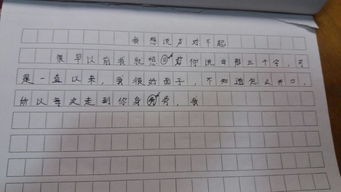 我想说声对不起
很早以前我就想对你说自那三个字，可
是一直以来，我很给面子，不知道怎么开口，
所以每次走到你身旁，我